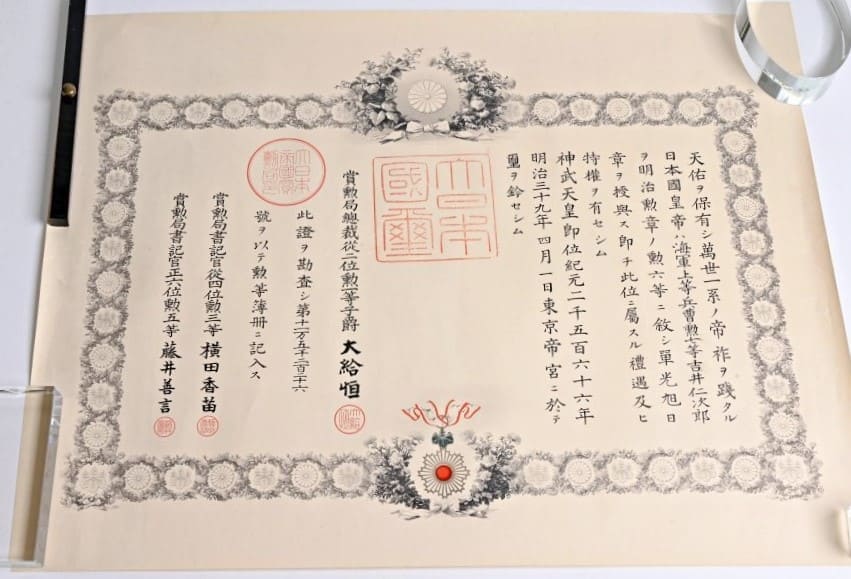 天佑ヲ保有シ萬世一系ノ帝祚ヲ踐タル
日本國皇帝ハ海軍上等兵曹勲七等吉井仁次郎
ヲ明治勲章ノ勲六等ニ敘シ單光旭日
章ヲ授與ス即チ此位ニ屬スル禮遇及ヒ
特權ヲ有セシム
神武天皇即位紀元二千五百六十六年
明治三十九年四月一日東京帝宮ニ於テ
璽ヲ鈐セシム
大日本國璽
賞勲局總裁從二位勲一等子爵 大給恒
此證ヲ勘査シ第十一万五千二百二十六
號ヲ以テ勲等簿册ニ記入ス
賞勲局書記官從四位勲三等 橫田香苗
賞勲局書記官正六位勲五等 藤井善言